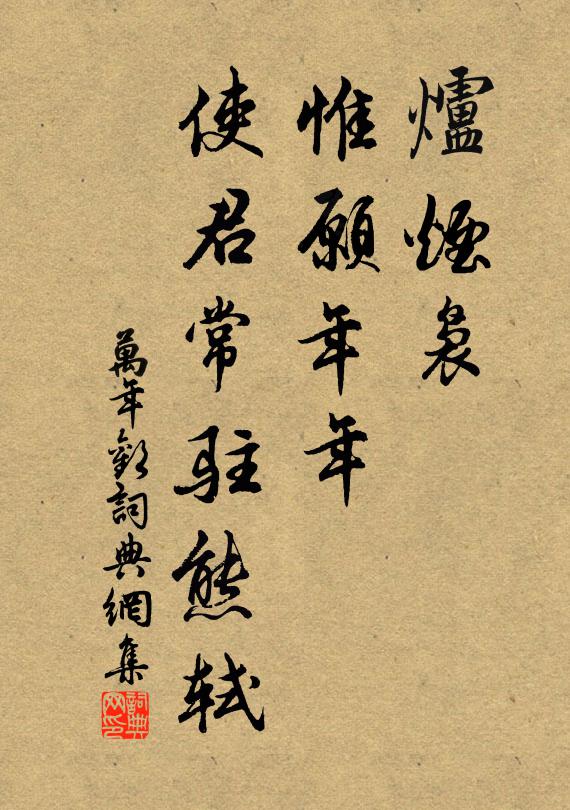 爐煙裊
惟願年年
使君常駐熊軾
萬年歡詞典網集
詞典网印